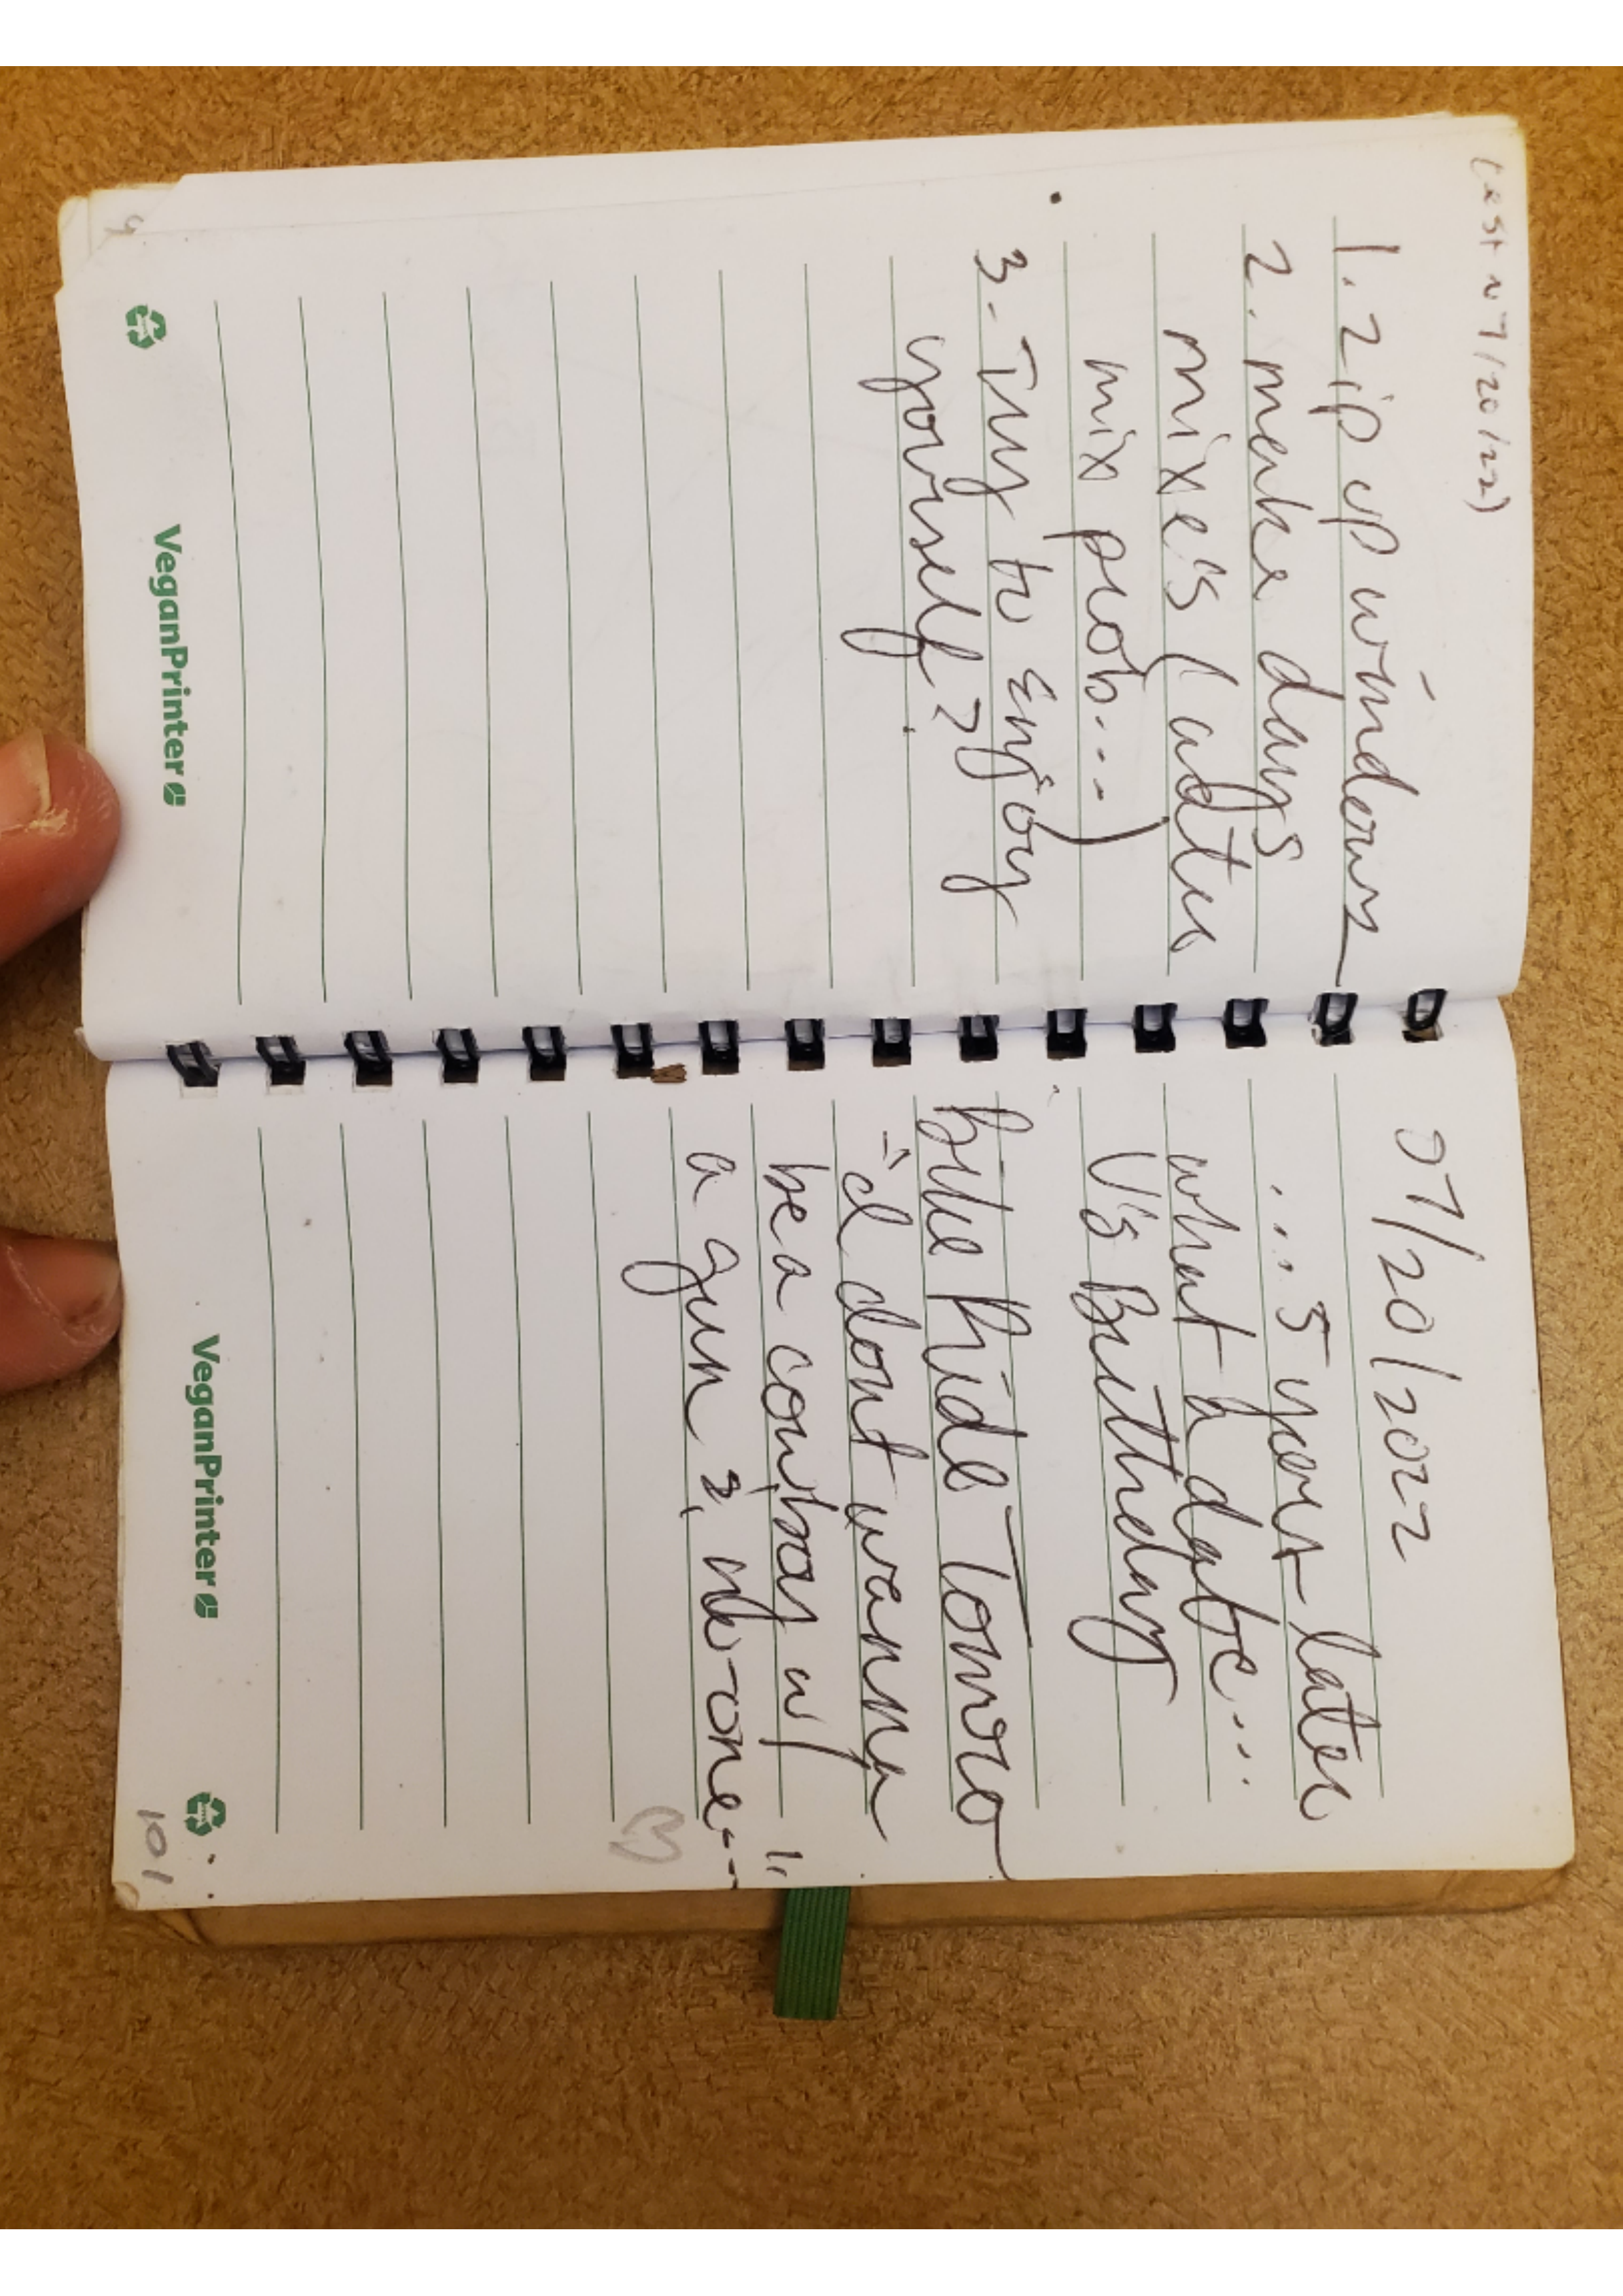 (est ~ 7/20/22)
1. zip up windows
2. make days
mixe's (adter
mix prob...)
3. Try to Enjoy
yourself >
VeganPrinter
07/20/2022
... 5 years later
what a date...
V's Birthday
bike Ride Tomro
"I dont wanna
be a cowboy w/
a gun & no-one..
VeganPrinter
101